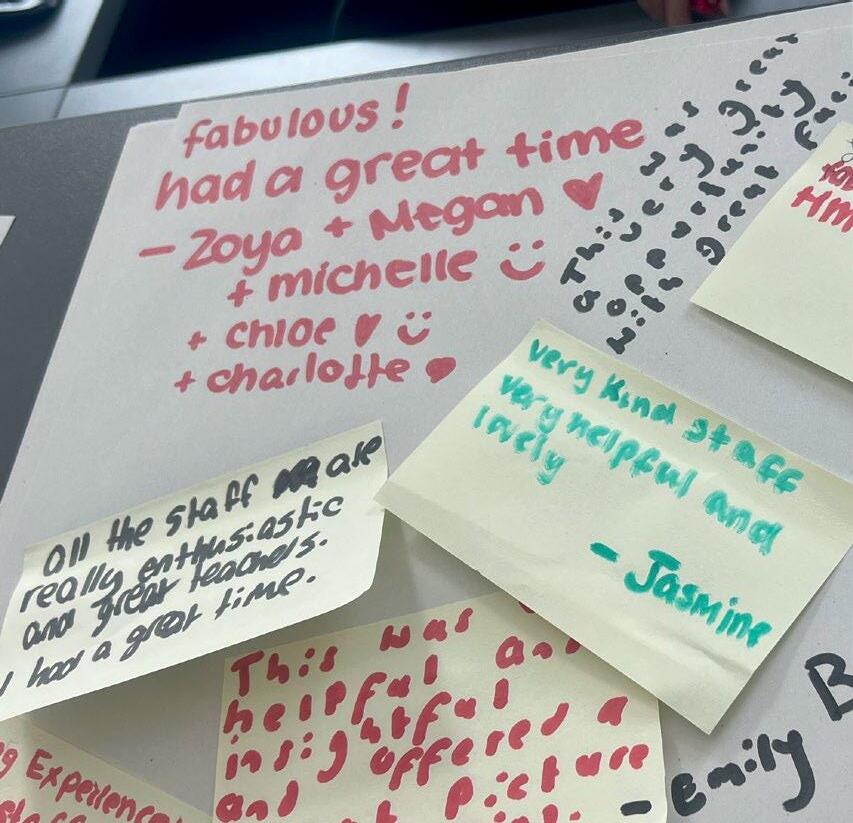 fabulous!
had a great time
- Zoya + Megan ♥
+ michelle :)
+ chloe ♥ :)
+ charlotte ♥
This was
a very great
opportunity
with great
very kind staff
very helpful and
lovely
- Jasmine
All the staff are
really enthusiastic
and great teachers.
I had a great time.
This was
helpful
insightful
and offered a
picture
Experience
- Emily B